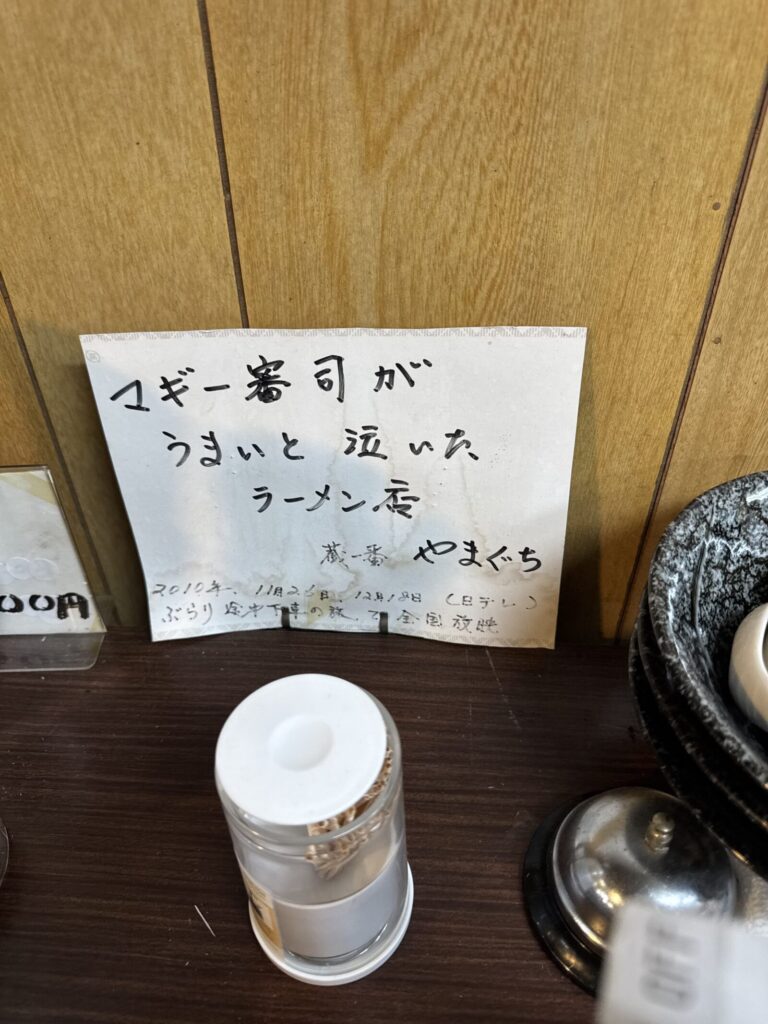 マギー審司が
うまいと 泣いた
ラーメン店
蔵一番 やまぐち
2010年、11月21日、12月18日 (日テレ)
ぶらり途中下車の旅、で全国放映
00円
OFF